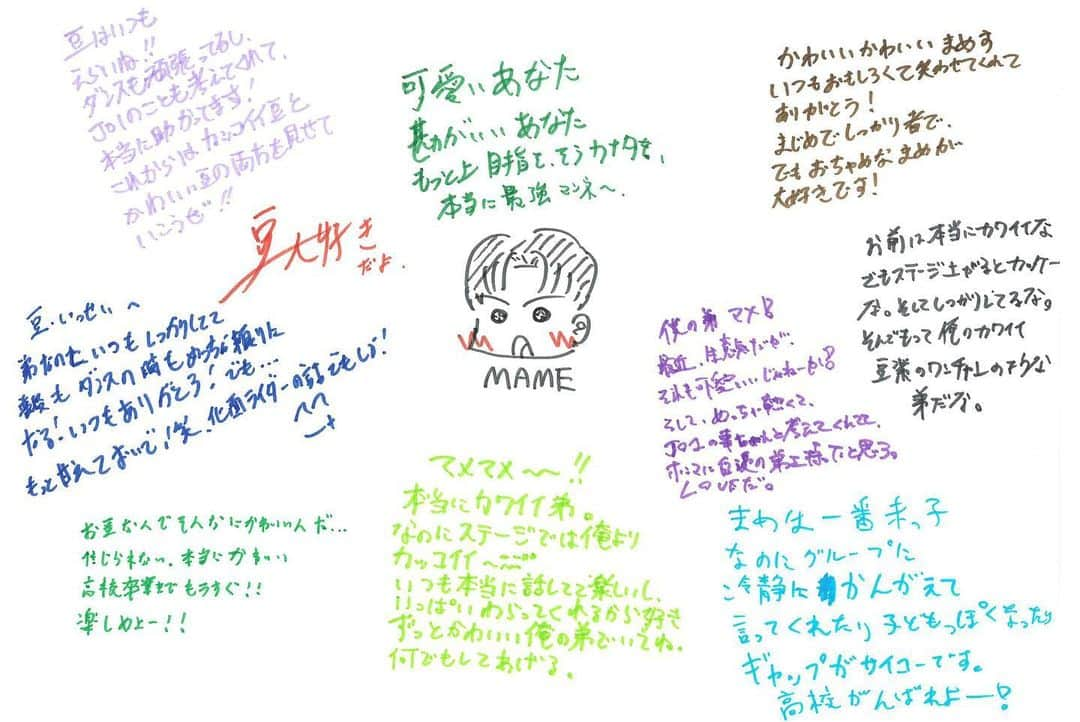 豆はいつも
えらいね!!
ダンスも頑張ってるし、
JO1のことも考えてくれて、
本当に助かってます!
これからは カッコイイ豆と
かわいい豆の両方を見せて
いこうぜ!!
可愛いあなた
勘がいい あなた
もっと上 目指せ、そうカナタを、
本当に最強マンネへ。
かわいいかわいい まめす
いつもおもしろくて笑わせてくれて
ありがとう!
まじめでしっかり者で、
でもおちゃめなまめが
大好きです!
豆大好き
だよ.
お前は本当にカワイイな
でもステージ上がるとカッケー
な。そしてしっかりしてるな。
そんでもって俺のカワイイ
豆柴のワンチャンのような
弟だな。
豆.いっせい へ
弟なのに いつも しっかりしてて
歌も ダンスの時も めっちゃ頼りに
なる!いつもありがとう!でも...
もっと甘えておいで!笑、仮面ライダーの話でもしよ!
MAME
僕の弟 マメ!
最近、生意気だが...
それも可愛いいじゃねーか!
そして、めっちゃ熱くて、
JO1の事ちゃんと考えてくれてて、
ホンマに自慢の弟を持ったと思う。
LOVEだ。
マメマメ〜〜!!
本当にカワイイ弟。
なのにステージでは俺より
カッコイイ〜
いつも本当に話してて楽しいし、
いっぱいわらってくれるから好き
ずっとかわいい俺の弟でいてね。
何でもしてあげる。
お豆なんでそんなにかわいいんだ...
信じられない、本当にかわいい
高校卒業までもうすぐ!!
楽しめよー!!
まめは一番末っ子
なのにグループに
冷静に かんがえて
言ってくれたり子どもっぽくなったり
ギャップがサイコーです。
高校がんばれよー!